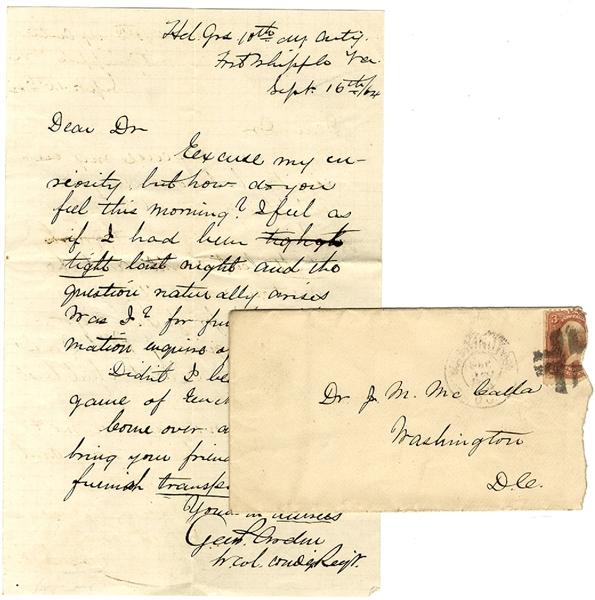 Hd. Qrs 10th Arty.
Fort Whipple Va.
Sept. 16th/64
Dear Dr
Eexcuse my cu-
riosity but how do you
feel this morning? I feel as
if I had been
tight last night and the
question naturally arises
Was I? for fur
mation enquire of
Didn't I be
game of Euch
Come over a
bring your frien
furnish transp
Yours in
Lt. Col. Comdg Regt.
3
Dr J. M. McCalla
Washington
D.C.